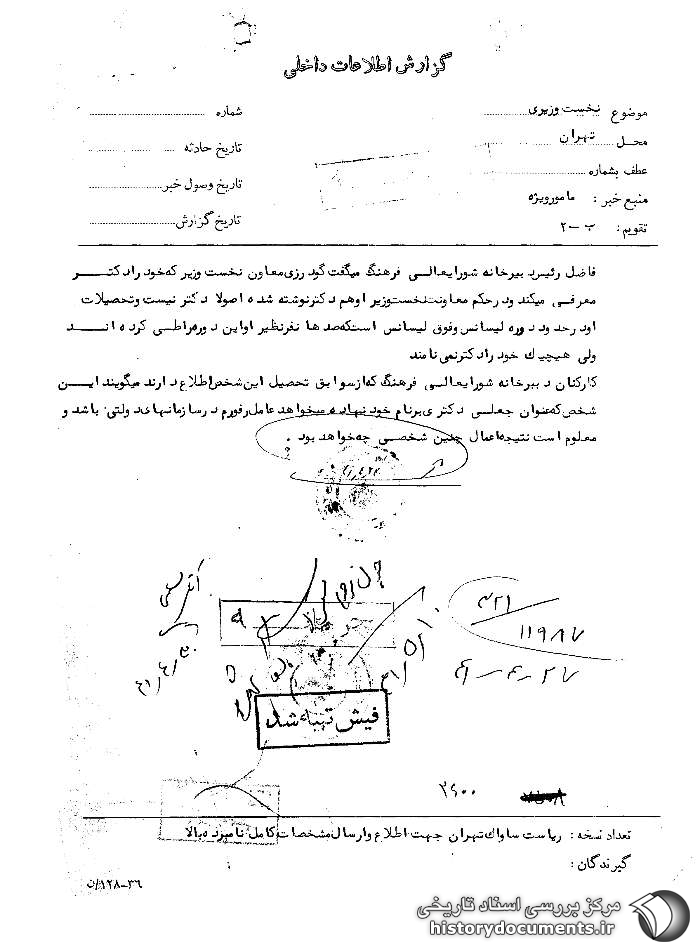 گزارش اطلاعات داخلی
موضوع نخست وزیری
شماره
محل تهران
تاریخ حادثه
عطف بشماره
تاریخ وصول خبر
منبع خبر : مامورویژه
تاریخ گزارش
تقویم : ب-۲
فاضل رئیس دبیرخانه شورایعالی فرهنگ میگفت گودرزی معاون نخست وزیر که خود را دکتر
معرفی میکند و در حکم معاونت نخست وزیر او هم دکتر نوشته شده اصولا دکتر نیست و تحصیلات
او در حدود دوره لیسانس و فوق لیسانس است که صدها نفر نظیر او این دوره را طی کرده اند
ولی هیچیک خود را دکتر نمی نامند
کارکنان دبیرخانه شورایعالی فرهنگ که از سوابق تحصیل این شخص اطلاع دارند میگویند این
شخص که عنوان جعلی دکتری بر نام خود نهاده میخواهد عامل رفورم در سازمانهای دولتی باشد و
معلوم است نتیجه اعمال چنین شخصی چه خواهد بود .
۴۱/۴/۳۰
۴۱/۵/۱۰
۳۲۱
۱۱۹۸۷
۴۱-۴-۲۷
فیش تهیه شد
تعداد نسخه : ریاست ساواک تهران جهت اطلاع و ارسال مشخصات کامل نامبرده بالا
گیرندگان :
۳۶-۱۲۸/ن
مرکز بررسی اسناد تاریخی
historydocuments.ir